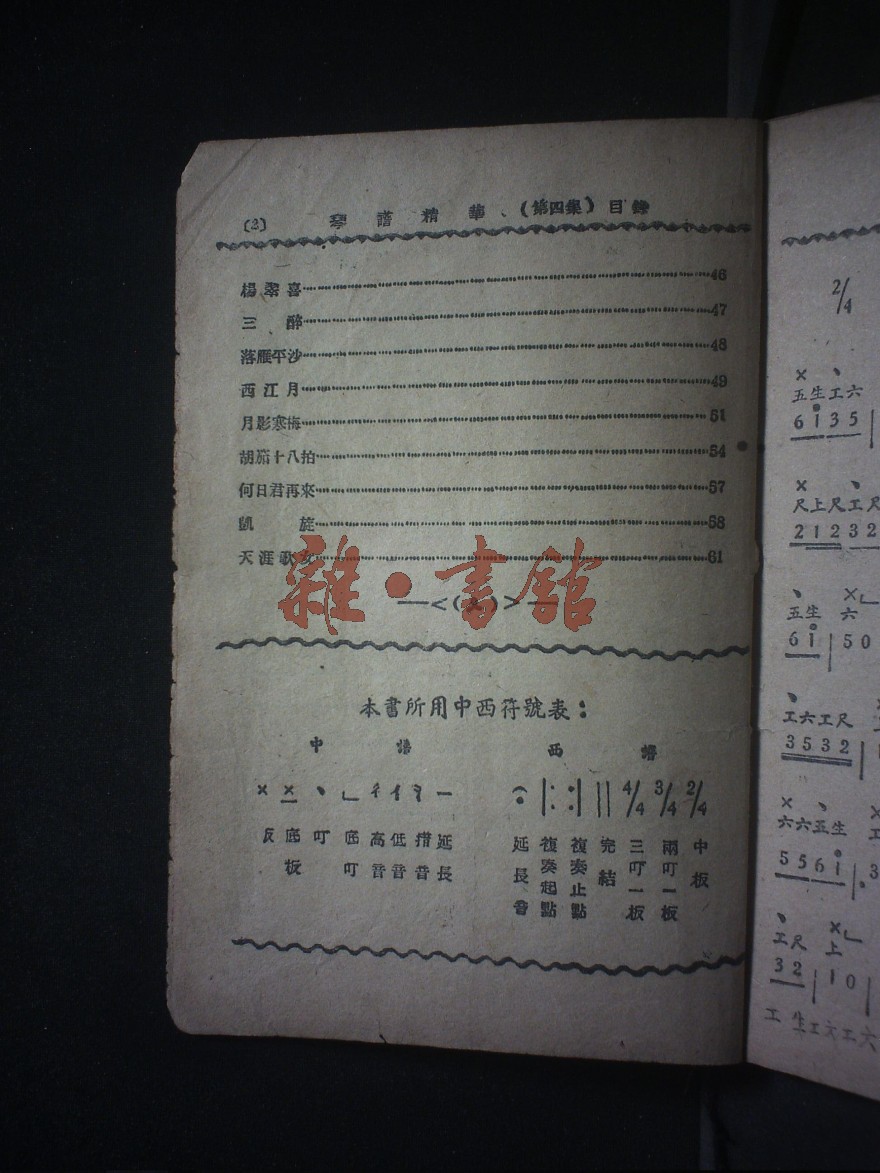 〔2〕 琴譜精華 （第四集）目錄
楊翠喜 46
三醉 47
落雁平沙 48
西江月 49
月影寒梅 51
胡笳十八拍 54
何日君再來 57
凱旋 58
天涯歌女 61
雜·書館
本書所用中西符號表：
中譜 西譜
× × 、 ㇄ 一 4/4 3/4 2/4
反 底板 叮 底叮 高音 低音 揩音 延長
延長音 複奏起點 複奏止點 完結 三叮一板 兩叮一板 中板
2/4
× 、
五生工六
6 i 3 5
× 、
尺上尺工尺
2 1 2 3 2
、 ×
五生 六
6 i | 5 0
、
工六工尺
3 5 3 2
× 、
六六五生
5 5 6 i | 3
、 ×
工尺 上
3 2 | 1 0